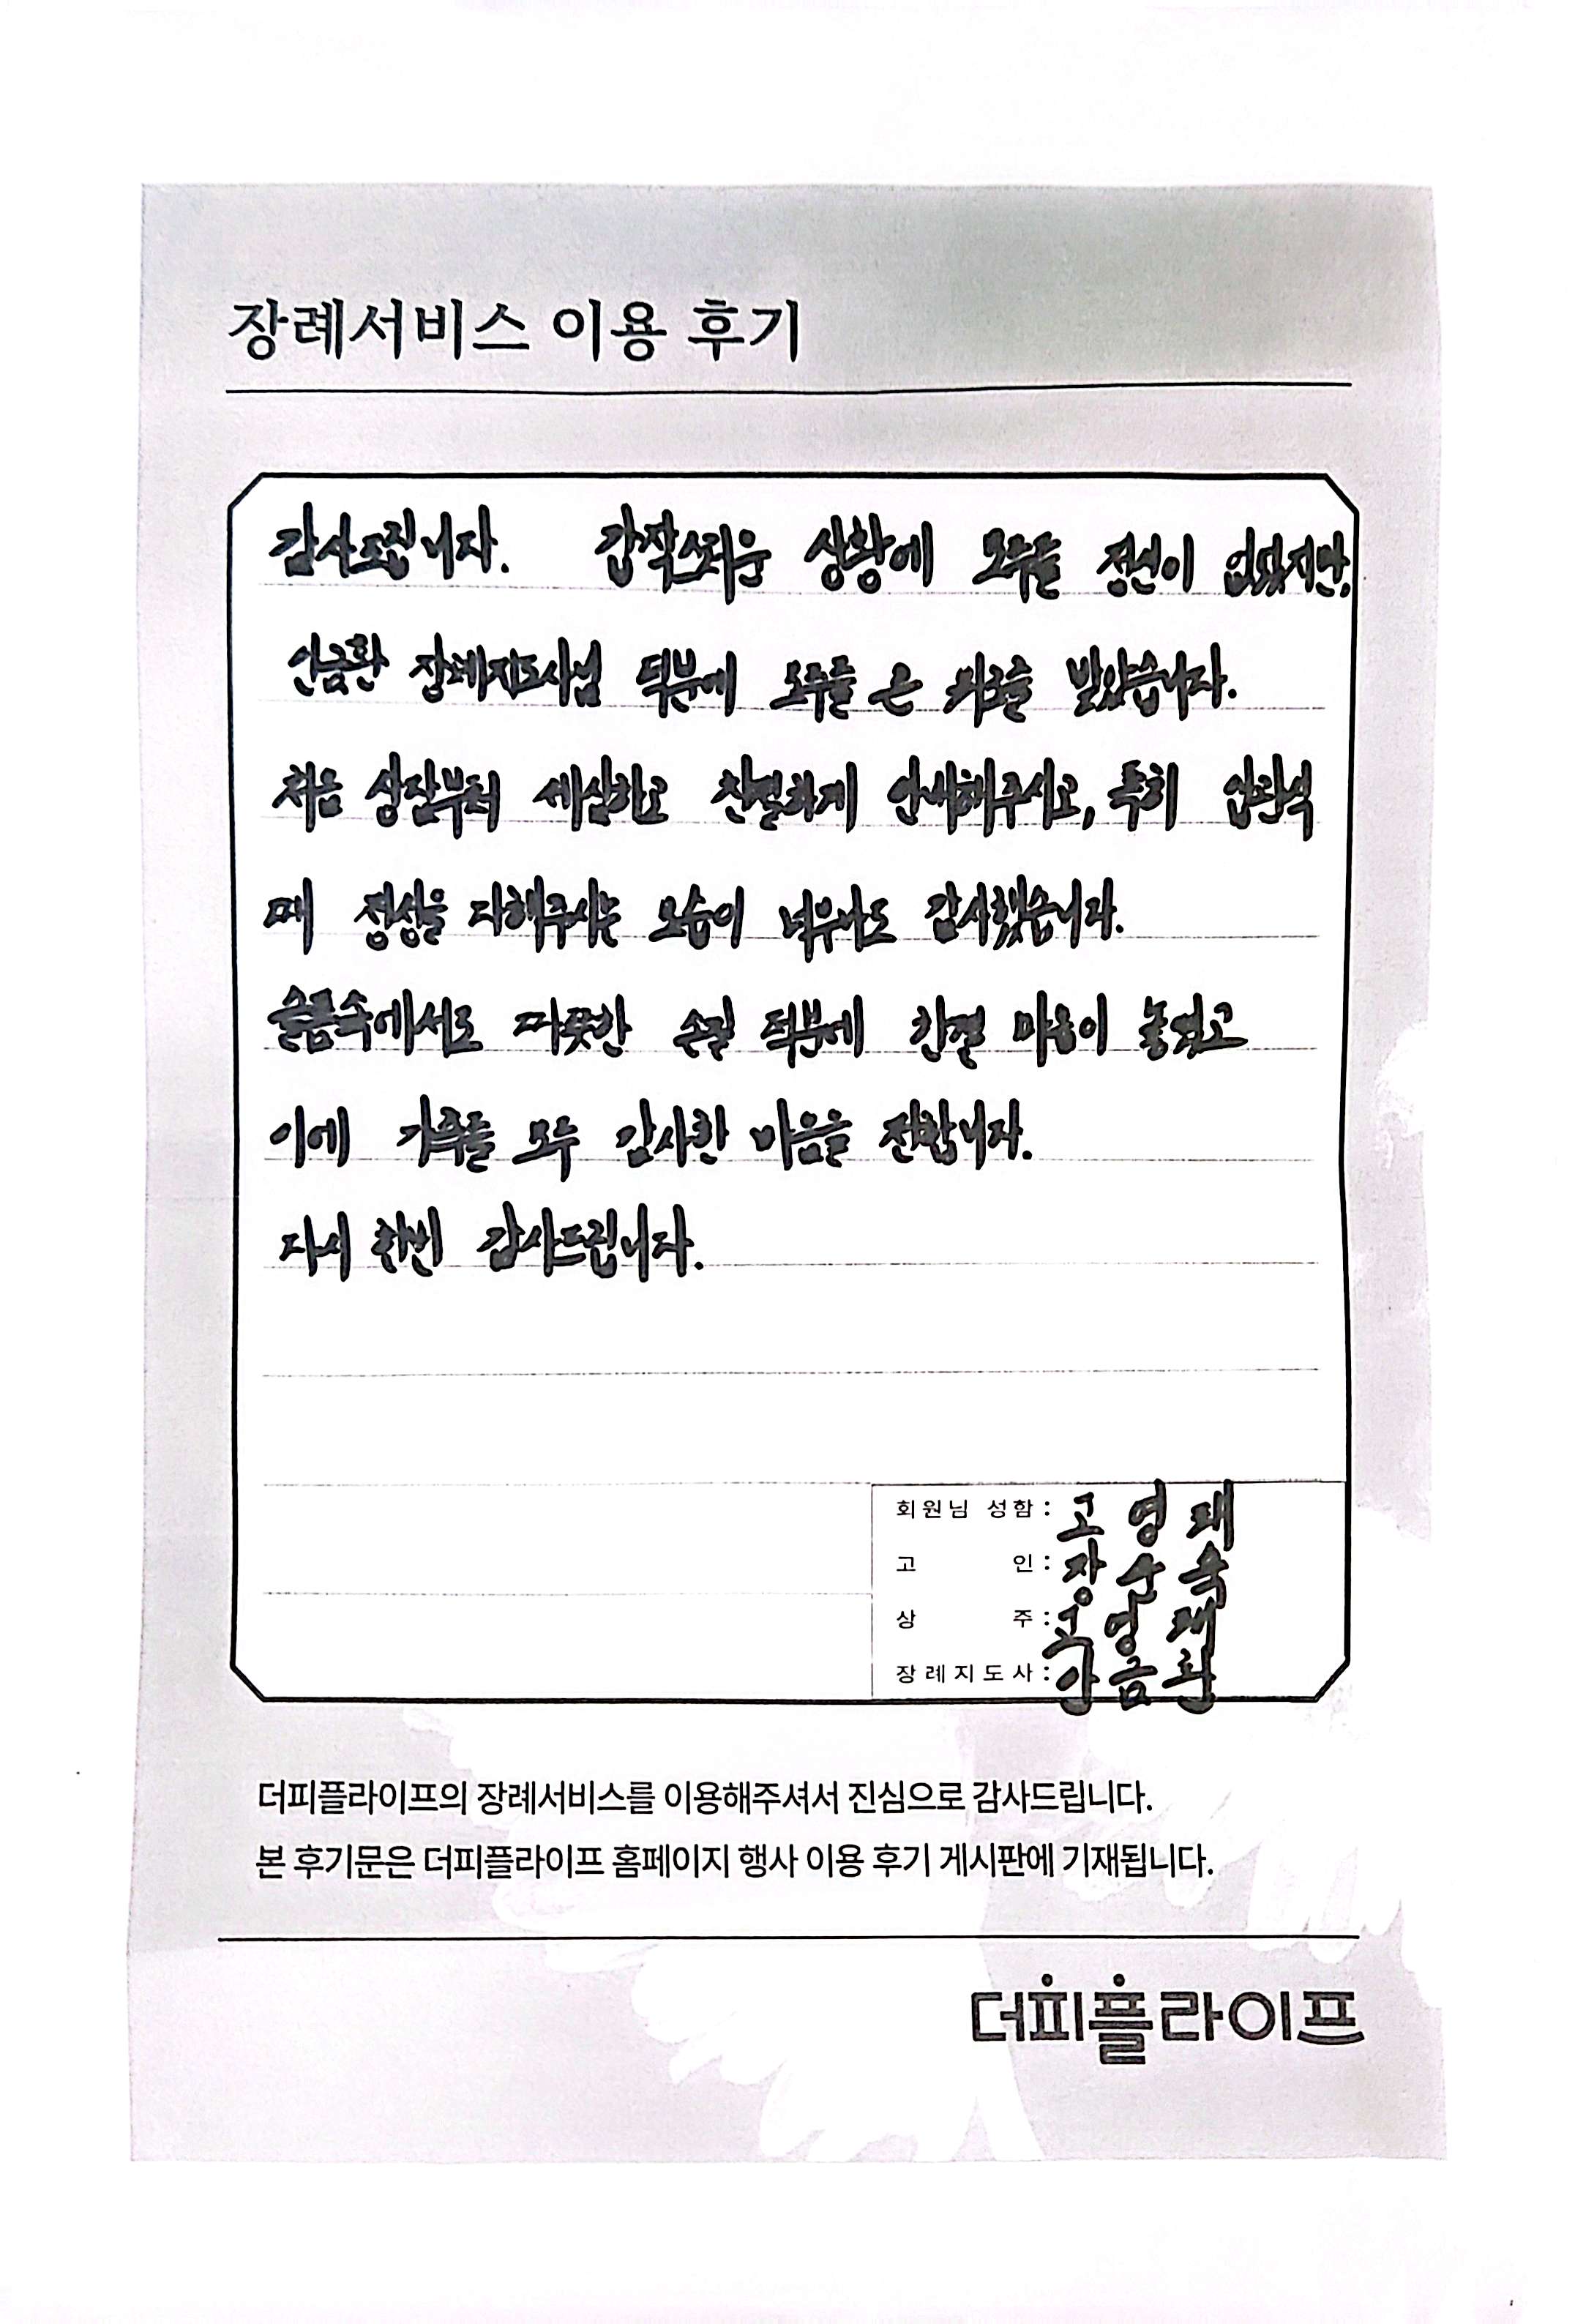 장례서비스 이용 후기
감사드립니다. 갑작스러운 상황에 모두들 정신이 없었지만,
안금환 장례지도사님 덕분에 모두들 큰 위로를 받았습니다.
처음 상담부터 세심하고 친절하게 안내해주시고, 특히 입관식
때 정성을 다해주시는 모습이 너무나도 감사했습니다.
슬픔속에서도 따뜻한 손길 덕분에 한결 마음이 놓였고
이에 가족들 모두 감사한 마음을 전합니다.
다시 한번 감사드립니다.
회원님 성함 : 고영재
고 인 : 장순옥
상 주 : 고영재
장례지도사 : 안금환
더피플라이프의 장례서비스를 이용해주셔서 진심으로 감사드립니다.
본 후기문은 더피플라이프 홈페이지 행사 이용 후기 게시판에 기재됩니다.
더피플라이프